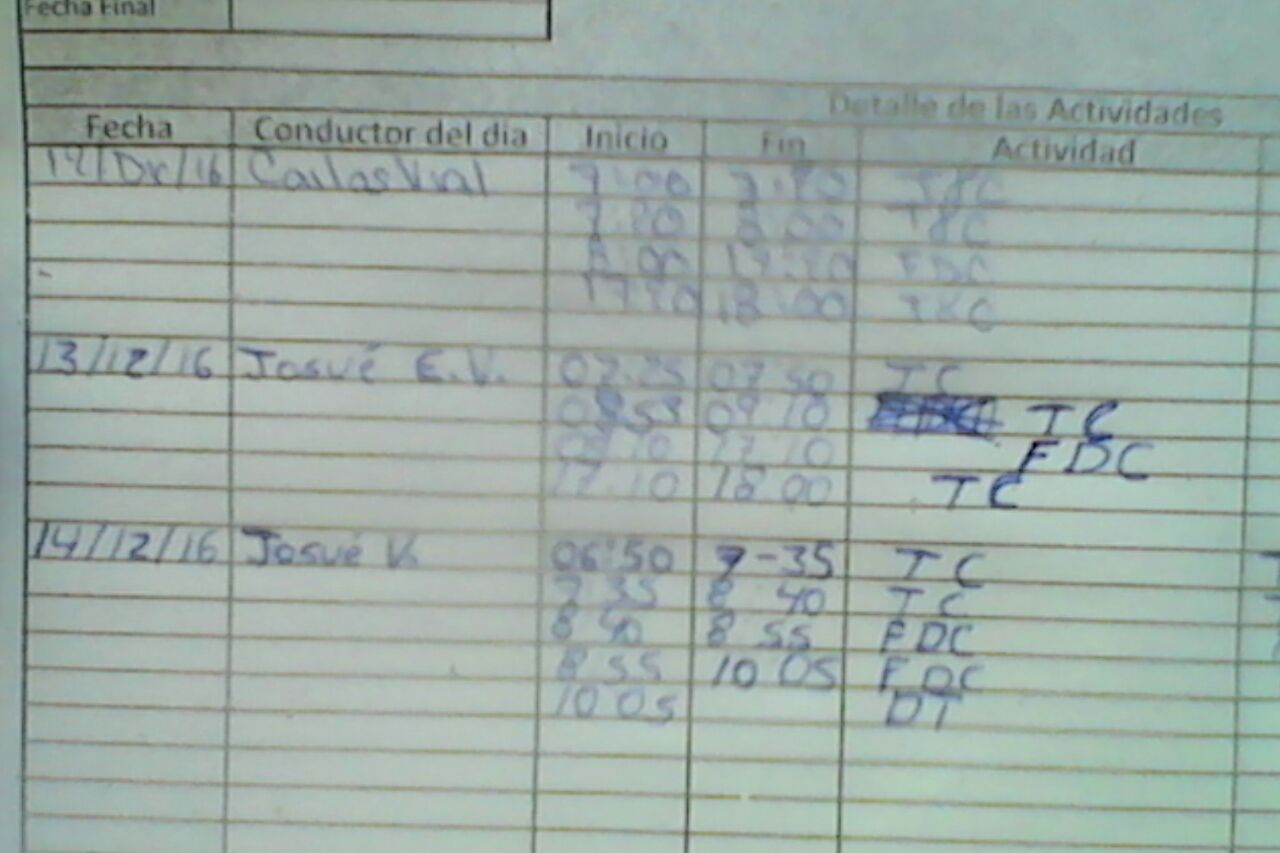 Fecha Final
Detalle de las Actividades
Fecha Conductor del dia Inicio Fin Actividad
12/Dic/16 Carlos Vial 7:00 7:20 T8C
7:20 8:00 T8C
8:00 17:20 FDC
17:20 18:00
13/12/16 Josué E.V. 07:25 07 50 TC
08 53 09 10 TC
09 10 17 10 FDC
17.10 18 00 TC
14/12/16 Josué V. 06:50 7-35 TC
7 35 8 40 TC
8 40 8 55 FDC
8 55 10 05 FDC
10 05 DT